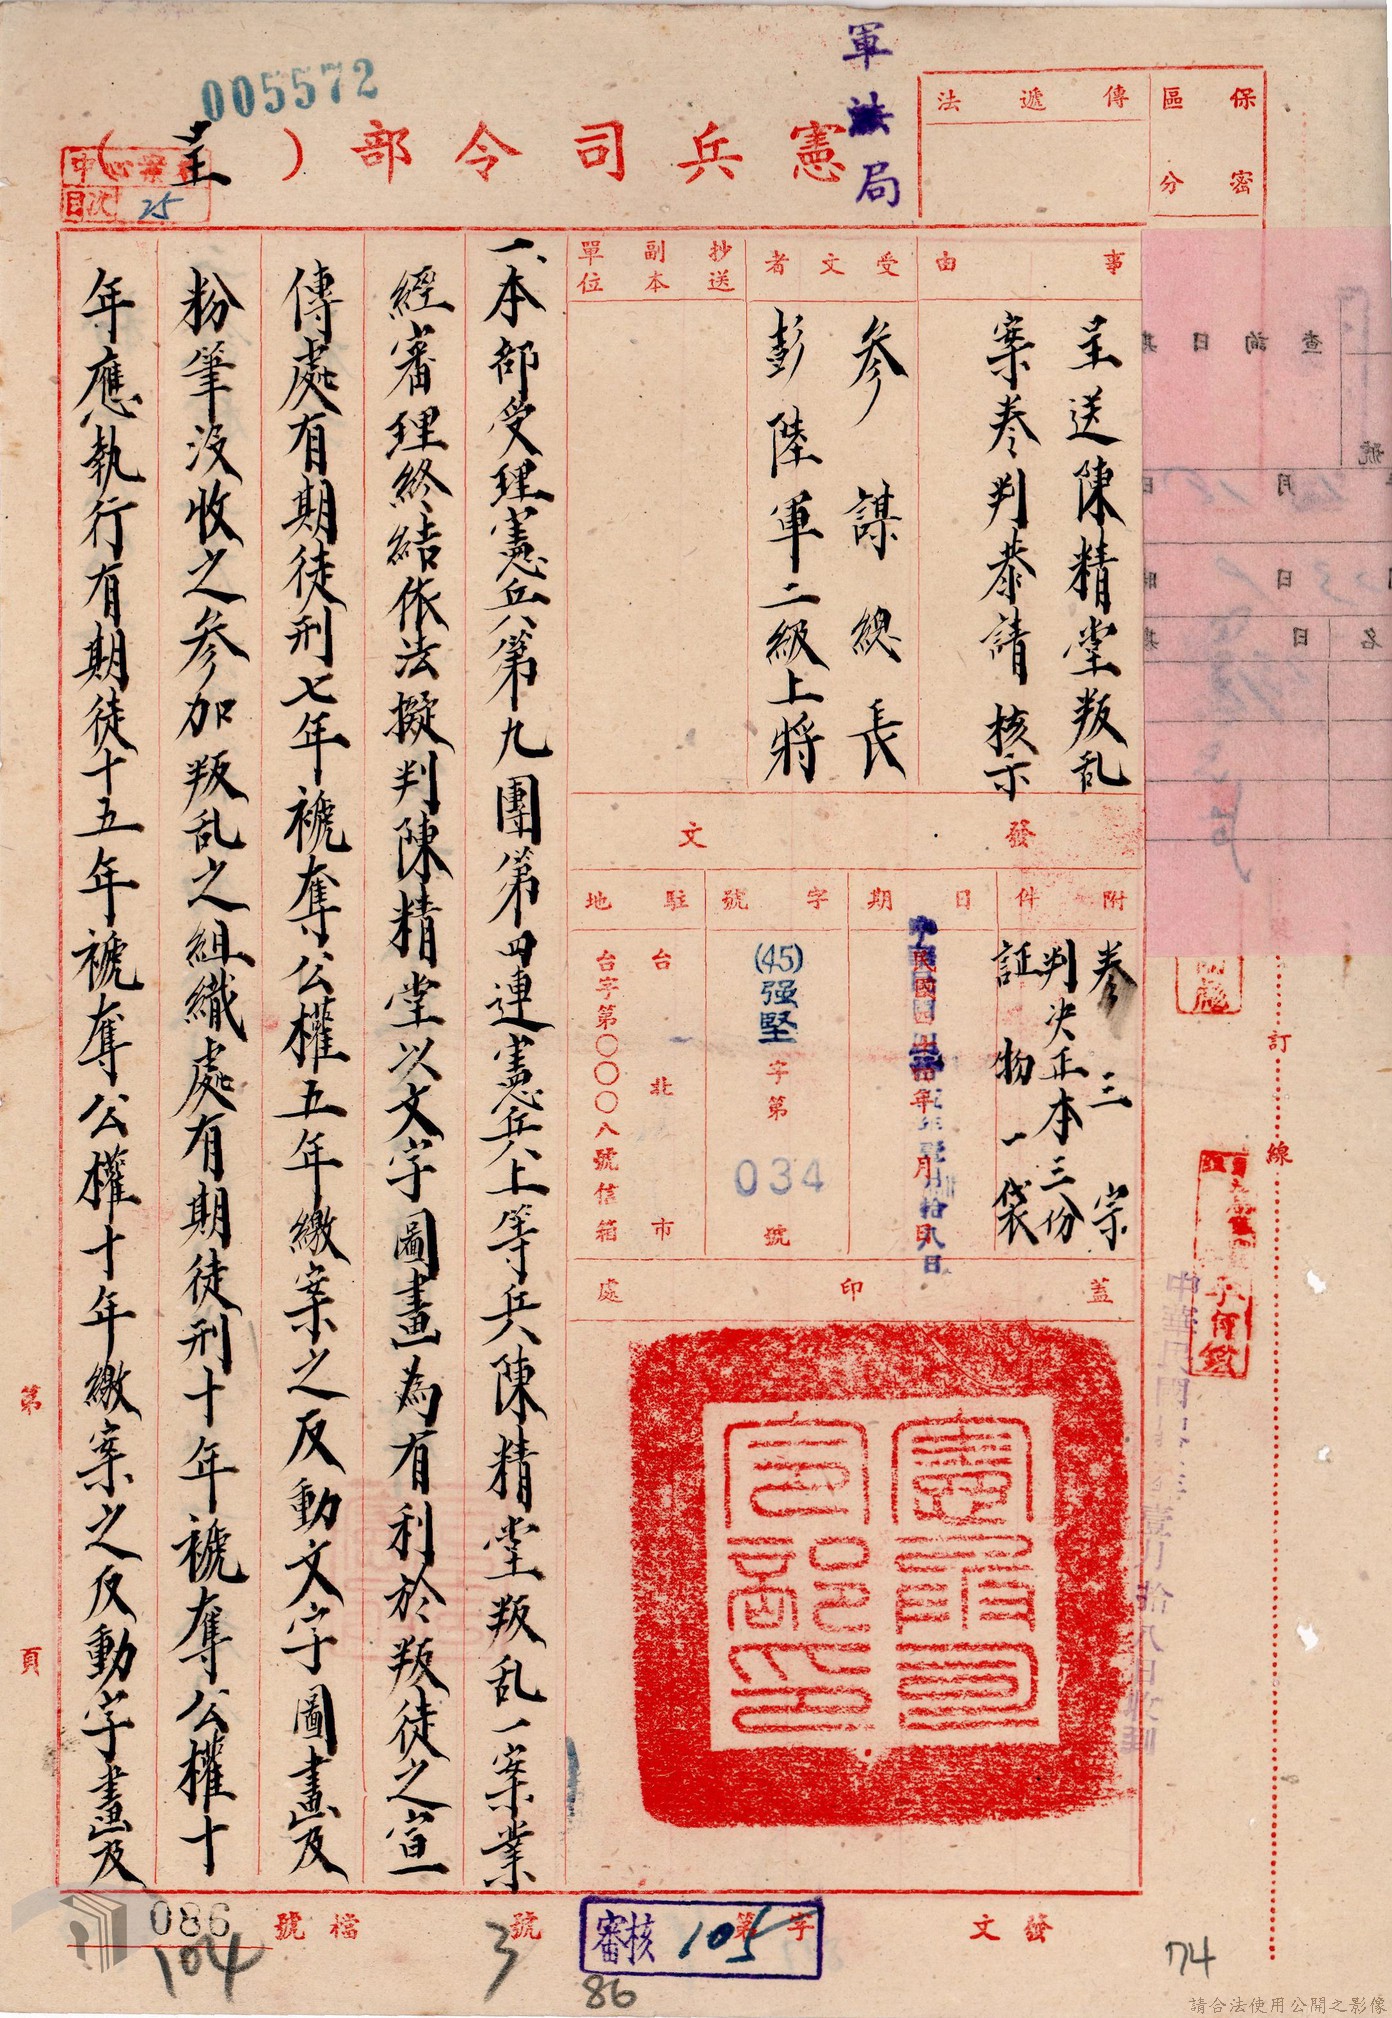 005572
軍法局
憲兵司令部（呈）
目次 25
保密區分
傳遞法
事由
呈送陳精堂叛乱
案卷判恭請核示
受文者
參謀總長
彭陸軍二級上將
抄送副本單位
發文
附件
卷三宗
判決正本三份
証物一袋
日期
字號
(45)强堅字第034號
駐地
台北市
台字第〇〇〇八號信箱
蓋印處
憲兵司令部印
一、本部受理憲兵第九團第四連憲兵上等兵陳精堂叛乱一案業
經審理終結依法擬判陳精堂以文字圖畫為有利於叛徒之宣
傳處有期徒刑七年褫奪公權五年繳案之反動文字圖畫及
粉筆沒收之參加叛乱之組織處有期徒刑十年褫奪公權十
年應執行有期徒十五年褫奪公權十年繳案之反動字畫及
訂線
第頁
發文字第號
審核 105
檔號
086
104
3
86
74
請合法使用公開之影像